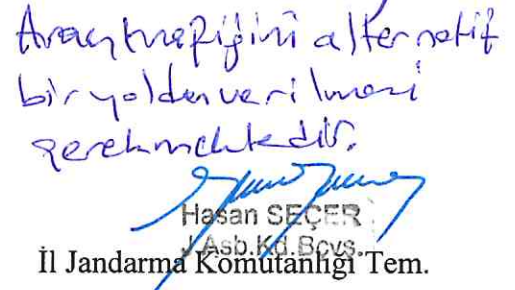 Araç trafiğini alternatif
bir yoldan verilmesi
gerekmektedir.
Hasan SEÇER
J.Asb.Kd.Bçvş.
İl Jandarma Komutanlığı Tem.